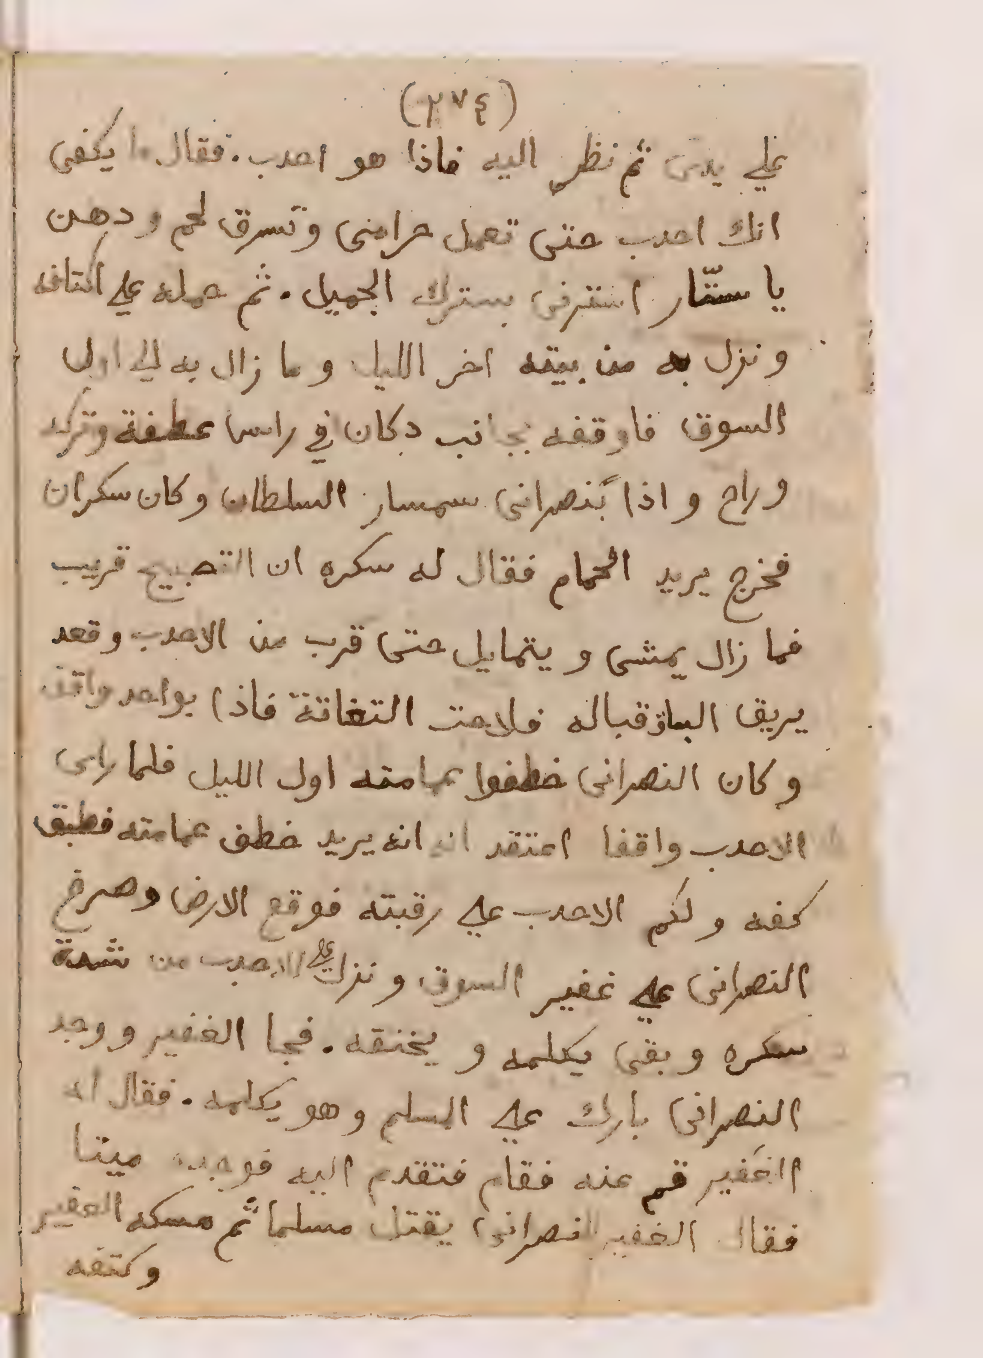 (٢٧٤)
علي يدي ثم نظر اليه فاذا هو احدب. فقال ما يكفي
انك احدب حتى تعمل حرامي وتسرق لحم ودهن
يا ستّار استرني بسترك الجميل. ثم حمله علي اكتافه
ونزل به من بيته اخر الليل وما زال به الي اول
السوق فاوقفه بجانب دكان في راس عطفة وتركه
وراح واذا بنصراني سمسار السلطان وكان سكران
فخرج يريد الحمام فقال له سكره ان التصبيح قريب
فما زال يمشي ويتمايل حتى قرب من الاحدب وقعد
يريق قباله فلاحت التفاتة فاذا بواحد واقف
وكان النصراني خطفوا عمامته اول الليل فلما راى
الاحدب واقفا اعتقد انه انه يريد خطف عمامته فطبق
كفه ولكم الاحدب علي رقبته فوقع الارض وصرخ
النصراني علي غفير السوق ونزل علي الاحدب من شدة
سكره وبقي يكلمه ويخنقه. فجا الغفير ووجد
النصراني بارك علي المسلم وهو يكلمه. فقال له
الغفير قم عنه فقام فتقدم اليه فوجده ميتا
فقال الغفير النصراني يقتل مسلما ثم مسكه الغفير
وكتفه